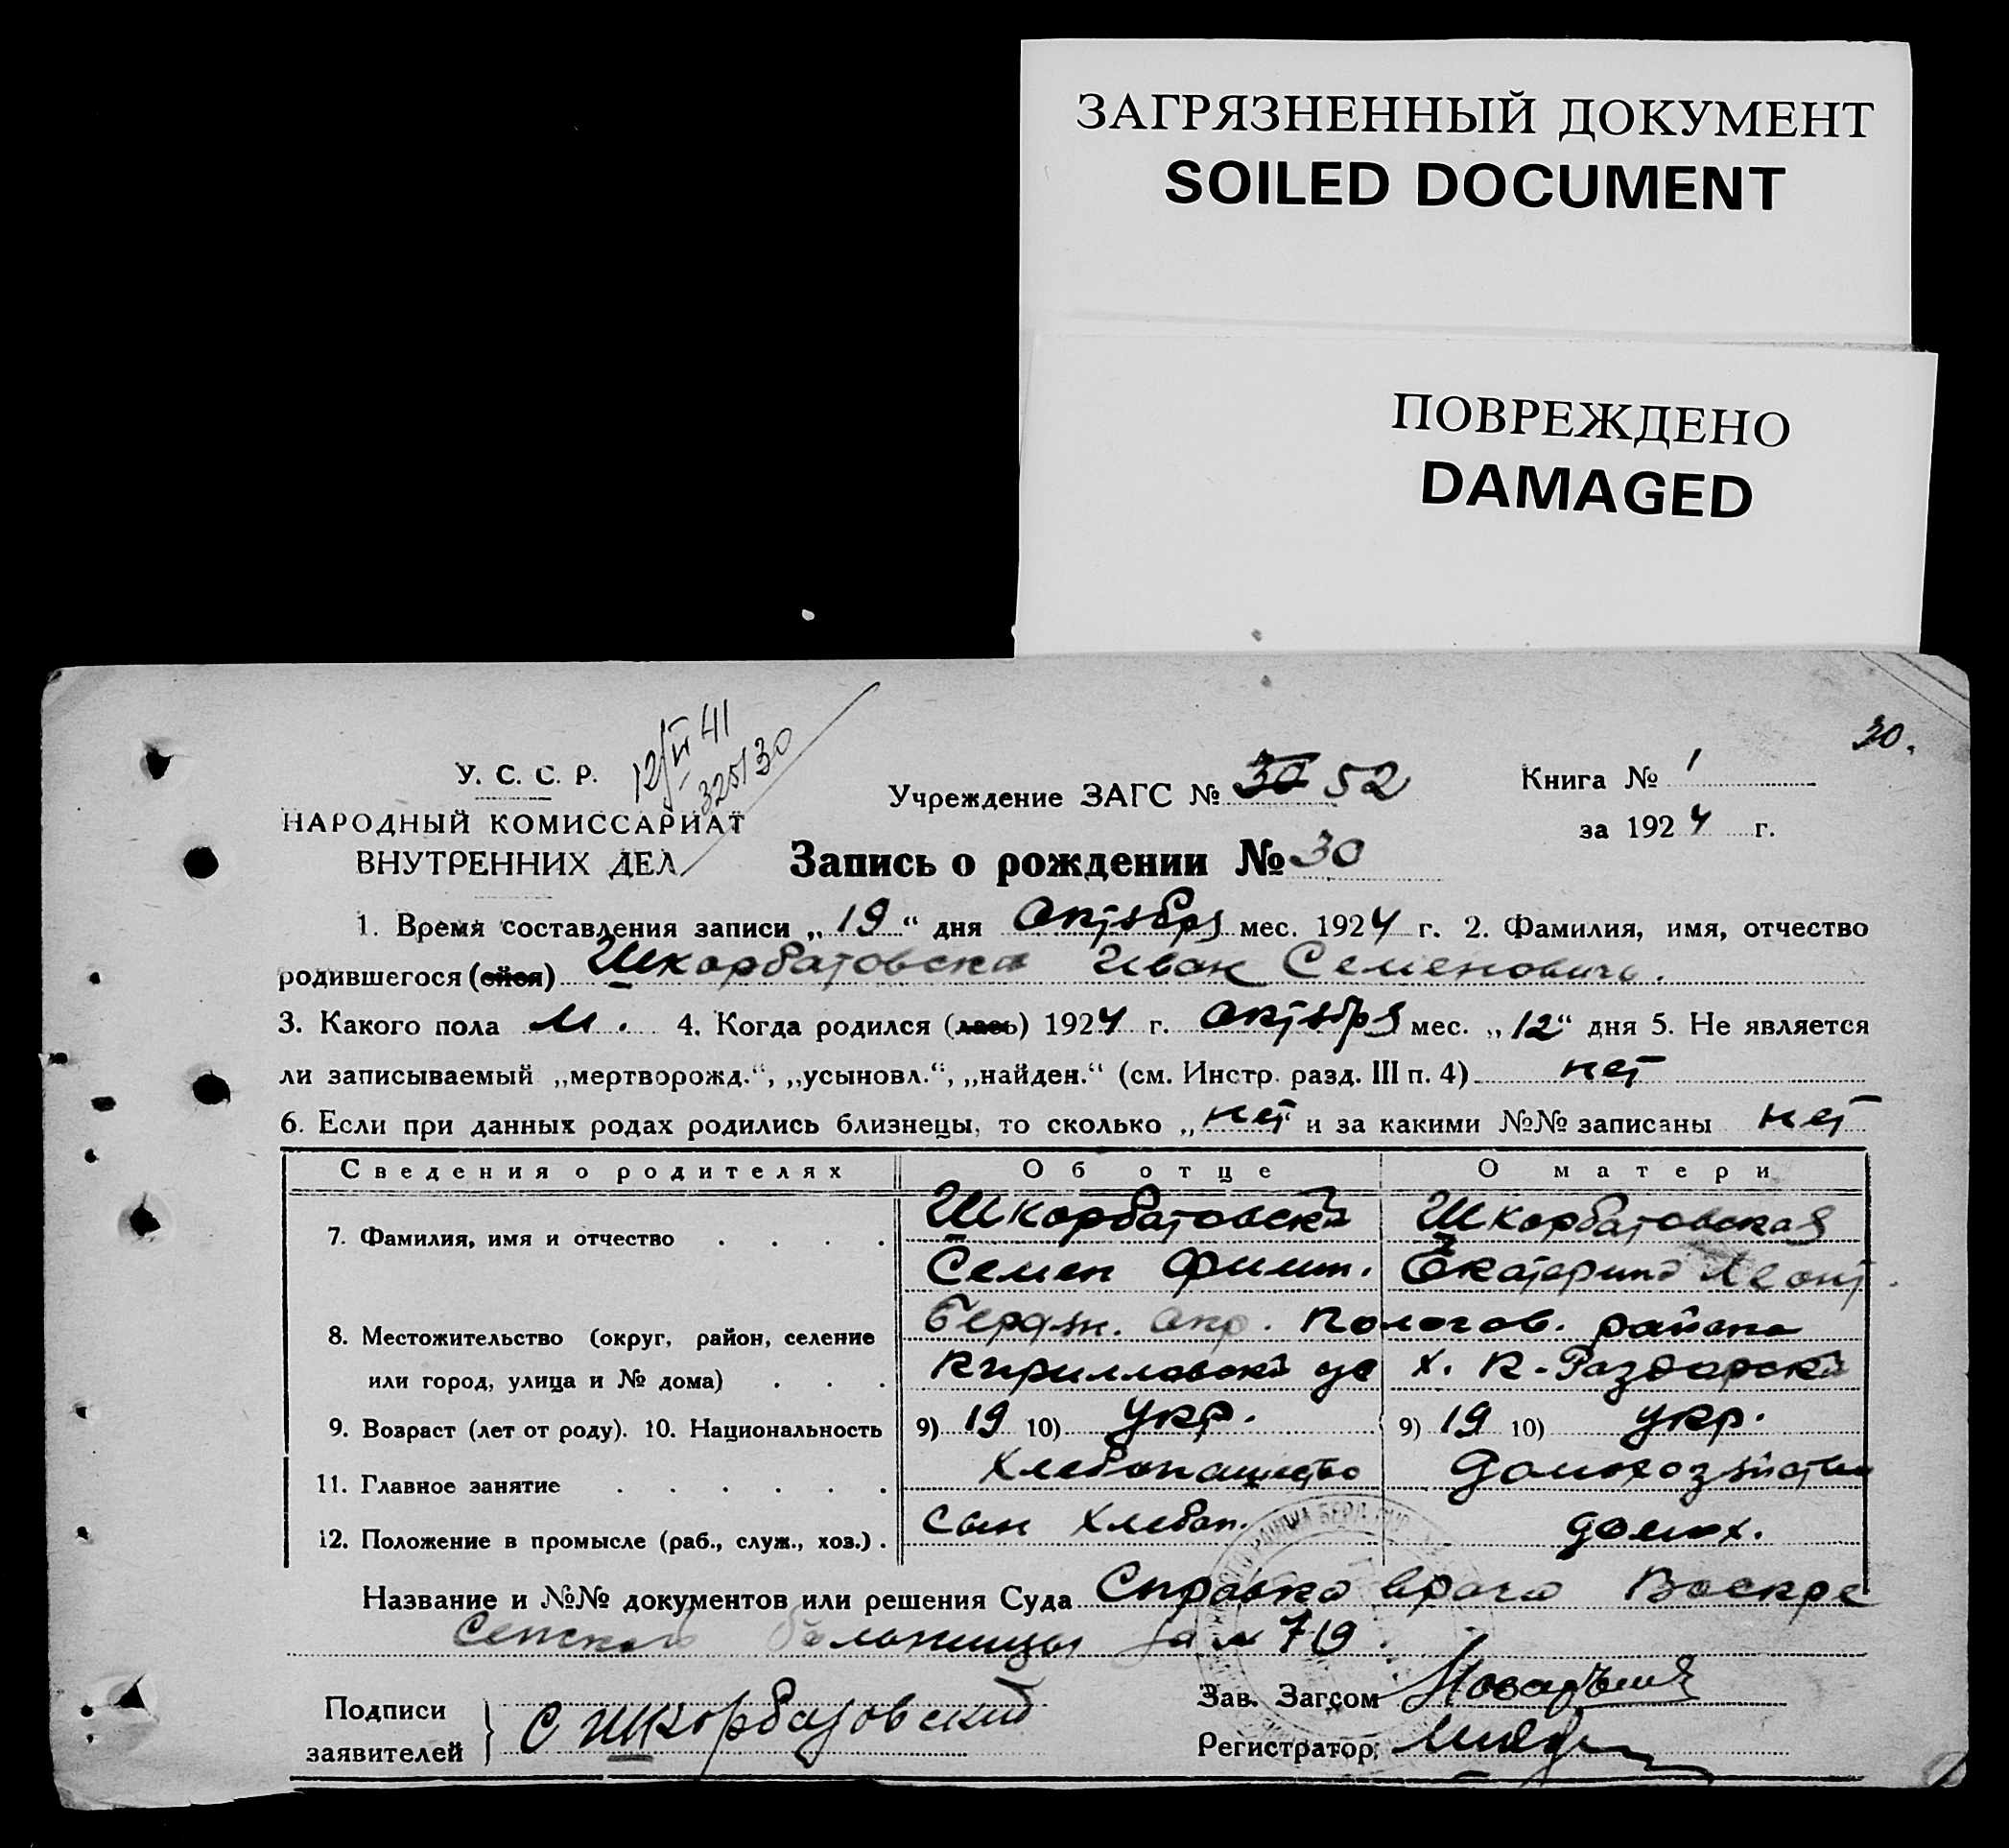 ЗАГРЯЗНЕННЫЙ ДОКУМЕНТ
SOILED DOCUMENT
ПОВРЕЖДЕНО
DAMAGED
30.
12/VI 41
325/30
У. С. С. Р.
НАРОДНЫЙ КОМИССАРИАТ
ВНУТРЕННИХ ДЕЛ
Учреждение ЗАГС № 30 52
Книга № 1
за 1924 г.
Запись о рождении № 30
1. Время составления записи „19“ дня Октября мес. 1924 г. 2. Фамилия, имя, отчество
родившегося (ейся) Шкорбатовски Иван Семенович.
3. Какого пола м. 4. Когда родился (лась) 1924 г. Октября мес. „12“ дня 5. Не является
ли записываемый „мертворожд.“, „усыновл.“, „найден.“ (см. Инстр. разд. III п. 4) нет
6. Если при данных родах родились близнецы, то сколько „нет“ и за какими №№ записаны нет
Сведения о родителях Об отце О матери
7. Фамилия, имя и отчество Шкорбатовский Шкорбатовская
Семен Филип. Екатерина Леонт.
8. Местожительство (округ, район, селение Бердян. окр. Пологов. района
или город, улица и № дома) Кирилловский х. К-Раздорский
9. Возраст (лет от роду). 10. Национальность 9) 19 10) укр. 9) 19 10) укр.
11. Главное занятие Хлебопашество Домохозяйство
12. Положение в промысле (раб., служ., хоз.) Сын хлебоп. домох.
Название и №№ документов или решения Суда Справка врача Воскре
сенской больницы за № 719.
Подписи
заявителей } С Шкорбатовский
Зав. Загсом
Регистратор: